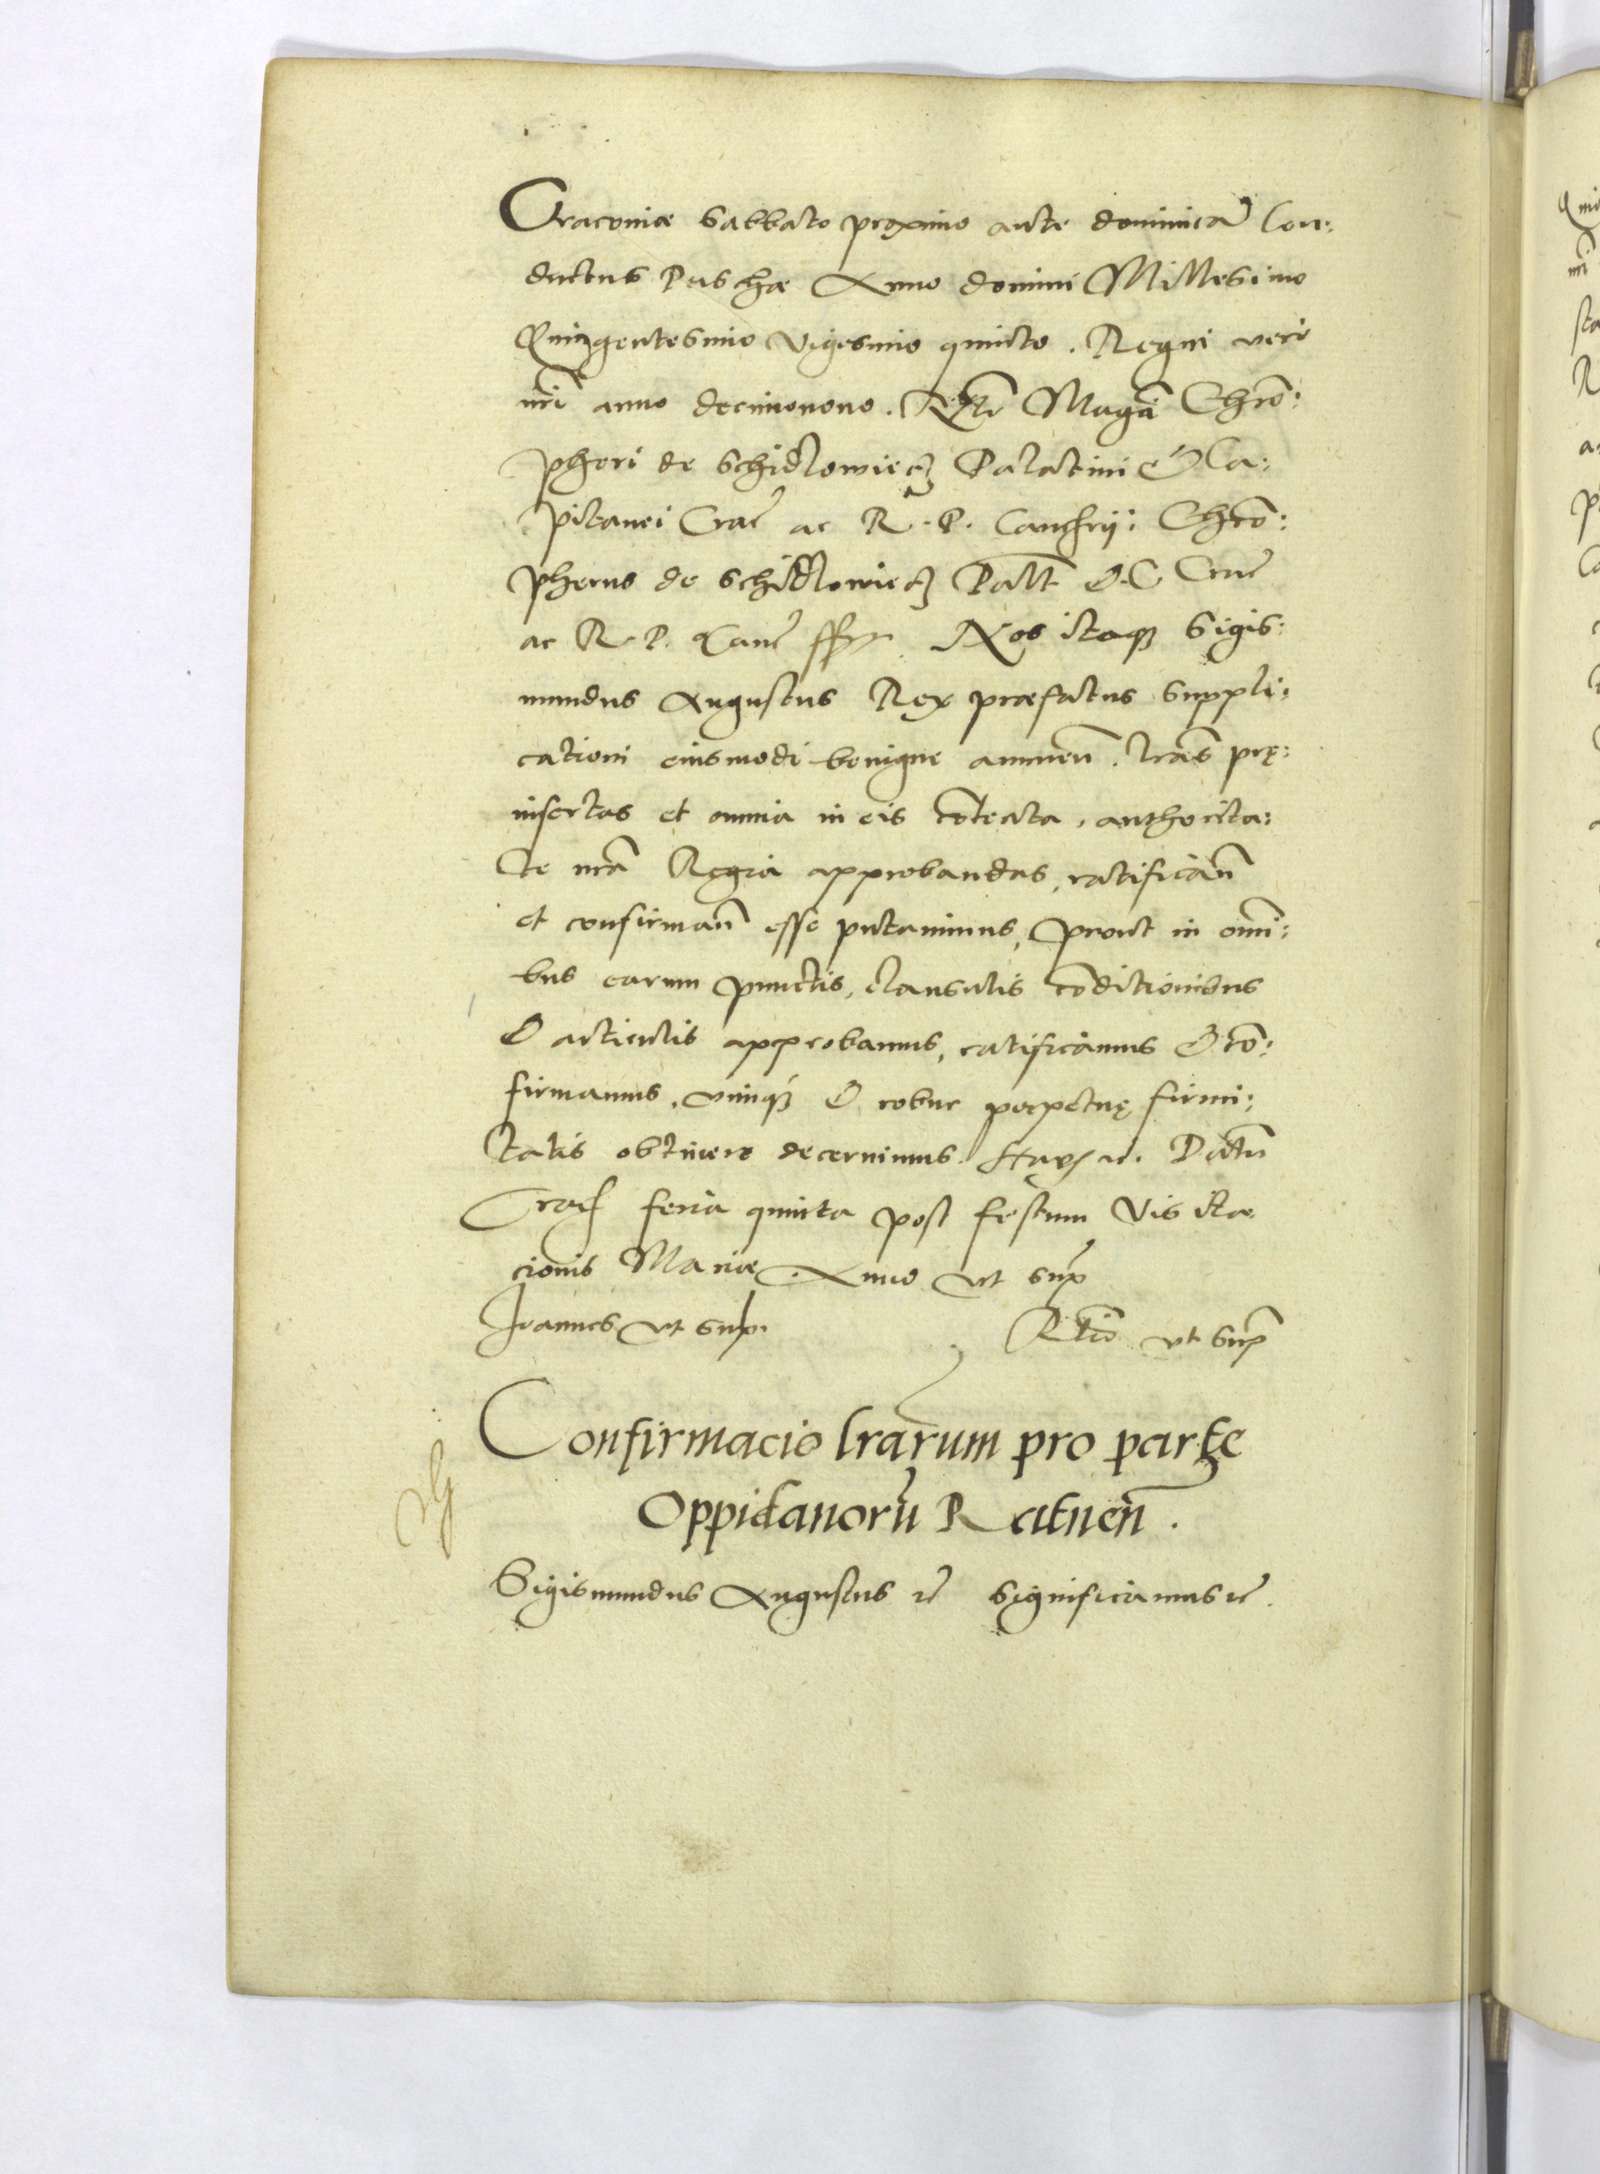 Cracoviæ Sabbato proximo ante dominicā Con:
ductus Paschæ Anno domini Millesimo
Quingentesimo Vigesimo quinto. Regni vero
nrī anno decimonono. Rtiō Magcī Chrō:
pheri de Schidlowiecz Palatini & Ca:
pitanei Crac̄ ac R. P. Cancrii: Chrō:
pherus de Schidlowiecz Palt̄ & C Crac̄
ac R. P. Canc̄ sst. Nos itaq3 Sigis:
mundus Augustus Rex præfatus Suppli:
cationi eiusmodi benigne annuen̄. lrās prę:
insertas et omnia in eis cōtenta, authorita:
te nrā Regia approbandas, ratifican̄
et confirman̄ esse putavimus, prout in omni:
bus earum punctis, clausulis cōditionibus
& articulis approbamus, ratificamus & cō:
firmamus, vimq3 & robur perpetuę firmi:
tatis obtinere decernimus. Datū
Crac̄ feria quinta post festum Visita
cionis Mariæ. Anno ut sup̄
Ioannes ut sup. Rtiō ut sup̄
Confirmacio lrarum pro parte
Oppidanorū Ratnen̄.
Sigismundus Augustus rc̄ Significamus rc̄.